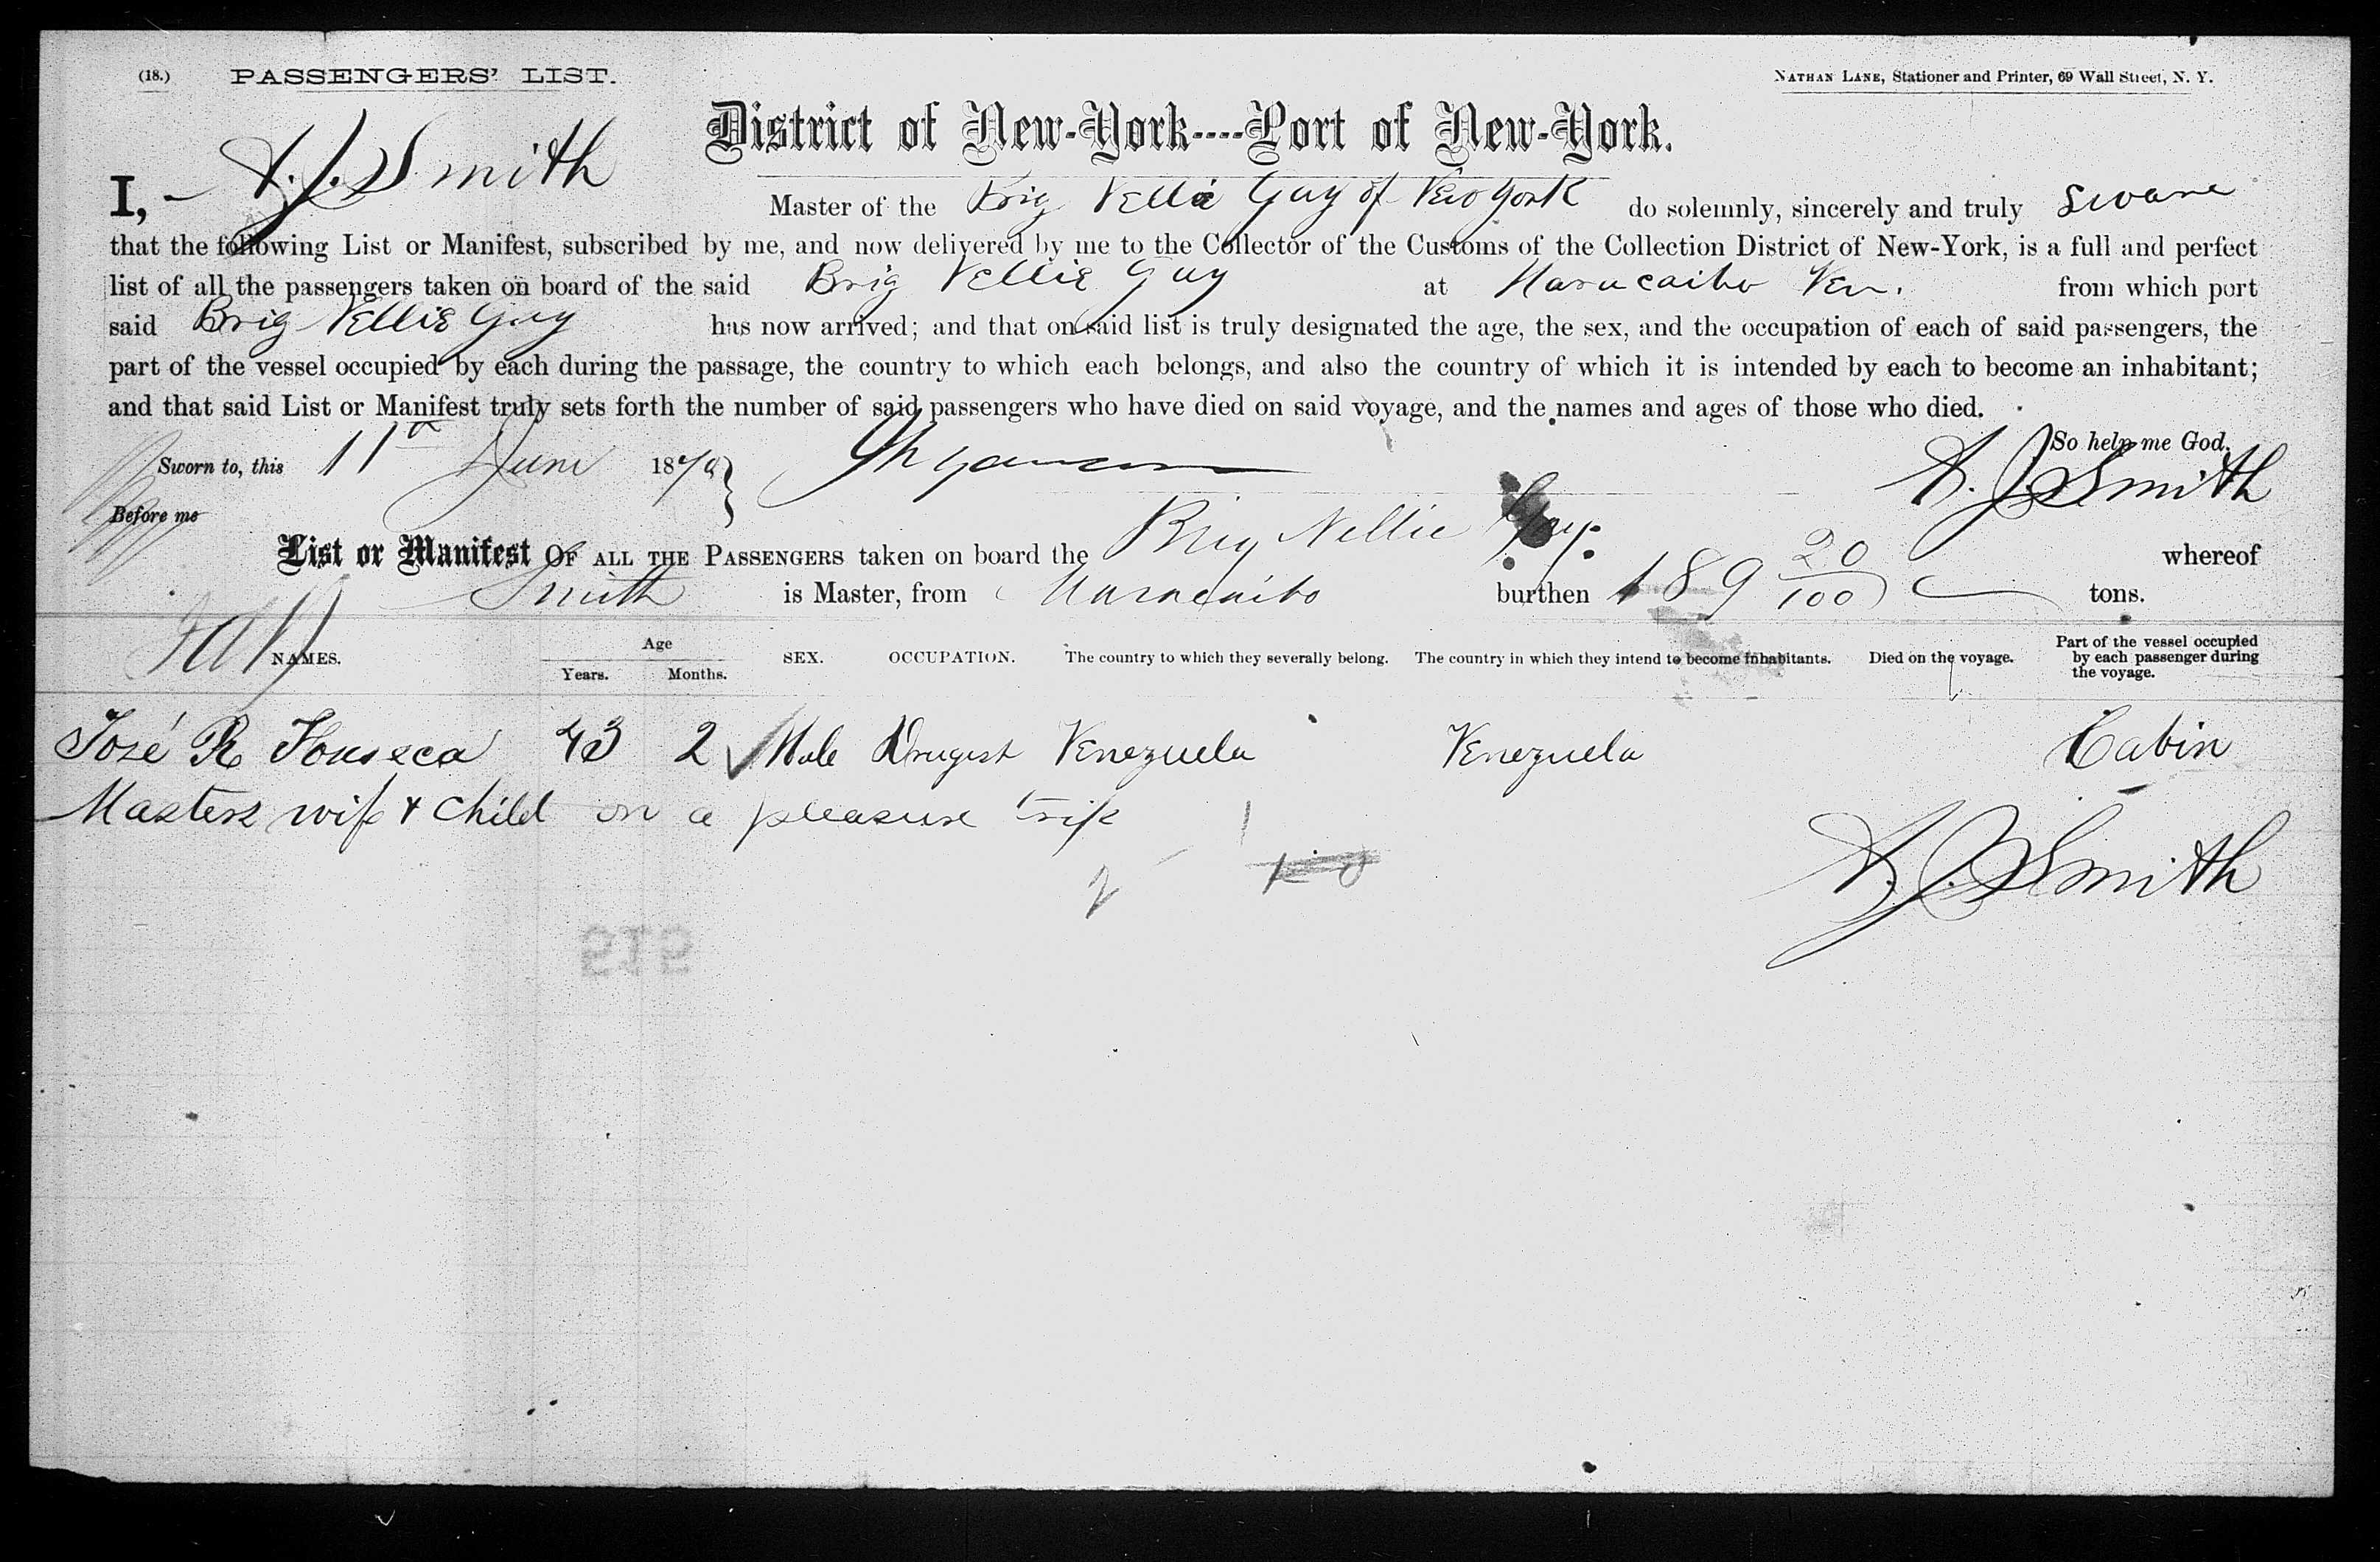 (18.) PASSENGERS' LIST. NATHAN LANE, Stationer and Printer, 69 Wall Street, N. Y.
District of New-York----Port of New-York.
I, A. J. Smith Master of the Brig Nellie Gay of New York do solemnly, sincerely and truly Sware
that the following List or Manifest, subscribed by me, and now delivered by me to the Collector of the Customs of the Collection District of New-York, is a full and perfect
list of all the passengers taken on board of the said Brig Nellie Gay at Maracaibo Ven. from which port
said Brig Nellie Gay has now arrived; and that on said list is truly designated the age, the sex, and the occupation of each of said passengers, the
part of the vessel occupied by each during the passage, the country to which each belongs, and also the country of which it is intended by each to become an inhabitant;
and that said List or Manifest truly sets forth the number of said passengers who have died on said voyage, and the names and ages of those who died.
So help me God.
Sworn to, this 11th June 18 A. J. Smith
Before me
List or Manifest OF ALL THE PASSENGERS taken on board the Brig Nellie Gay. whereof
Smith is Master, from Maracaibo burthen 189 20/100 tons.
NAMES. Age Years. Months. SEX. OCCUPATION. The country to which they severally belong. The country in which they intend to become inhabitants. Died on the voyage. Part of the vessel occupied by each passenger during the voyage.
José R Fonseca 43 2 Male Drugist Venezuela Venezuela Cabin
Masters wife & child on a pleasure trip 1
2
A. J. Smith
515